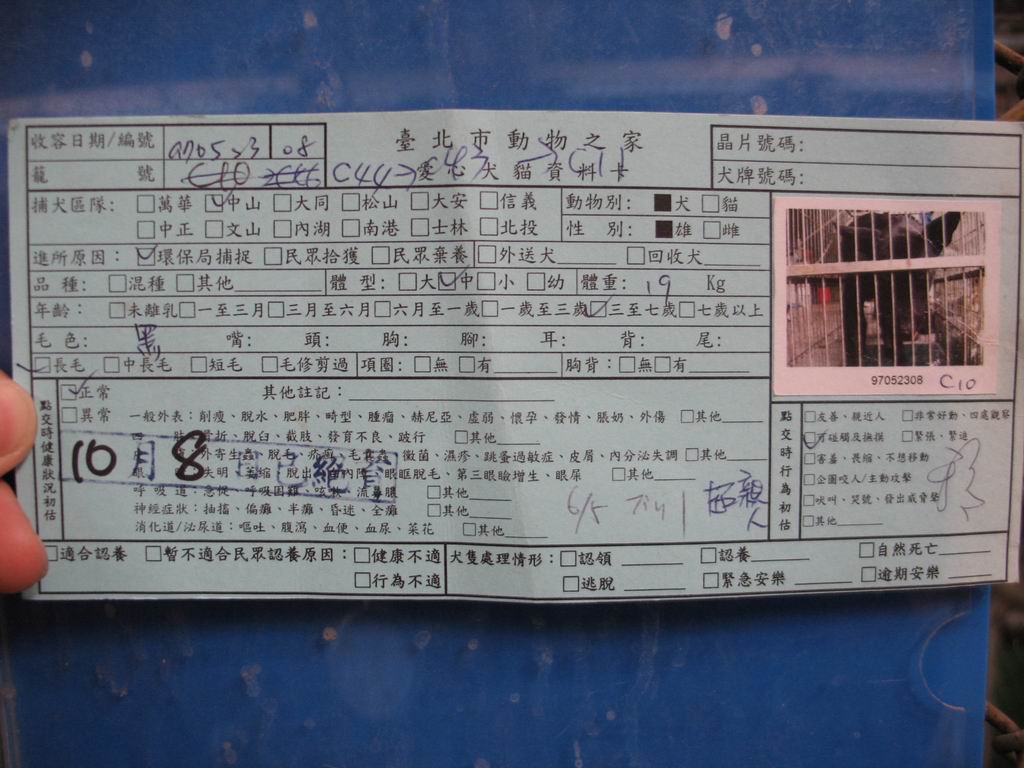 收容日期/編號 970523 08 臺北市動物之家 晶片號碼:
籠 號 C10 C44→C43→C11 愛心犬貓資料卡 犬牌號碼:
捕犬區隊: □萬華 ☑中山 □大同 □松山 □大安 □信義 動物別: ■犬 □貓
□中正 □文山 □內湖 □南港 □士林 □北投 性 別: ■雄 □雌
進所原因: ☑環保局捕捉 □民眾拾獲 □民眾棄養 □外送犬 □回收犬
品 種: □混種 □其他 體 型: □大 ☑中 □小 □幼 體重: 19 Kg
年齡: □未離乳 □一至三月 □三月至六月 □六月至一歲 □一歲至三歲 ☑三至七歲 □七歲以上
毛 色: 黑 嘴: 頭: 胸: 腳: 耳: 背: 尾:
☑長毛 □中長毛 □短毛 □毛修剪過 項圈: □無 □有 胸背: □無 □有
97052308 C10
點交時健康狀況初估
☑正常 其他註記:
□異常 一般外表: 削瘦、脫水、肥胖、畸型、腫瘤、赫尼亞、虛弱、懷孕、發情、脹奶、外傷 □其他
四 肢: 骨折、脫臼、截肢、發育不良、跛行 □其他
外寄生蟲、脫毛、疥癬、毛囊蟲、黴菌、濕疹、跳蚤過敏症、皮屑、內分泌失調 □其他
失明、萎縮、脫出、白內障、眼眶脫毛、第三眼瞼增生、眼屎 □其他
呼吸道: 急促、呼吸困難、咳嗽、流鼻膿 □其他
神經症狀: 抽搐、偏癱、半癱、昏迷、全癱 □其他
消化道/泌尿道: 嘔吐、腹瀉、血便、血尿、菜花 □其他
10月8日已絕育
6/5
超親人
點交時行為初估
□友善、親近人 □非常好動、四處觀察
☑可碰觸及撫摸 □緊張、緊迫
□害羞、畏縮、不想移動
□企圖咬人/主動攻擊
□吠叫、哭號、發出威脅聲
□其他
□適合認養 □暫不適合民眾認養原因: □健康不適 犬隻處理情形: □認領 □認養 □自然死亡
□行為不適 □逃脫 □緊急安樂 □逾期安樂